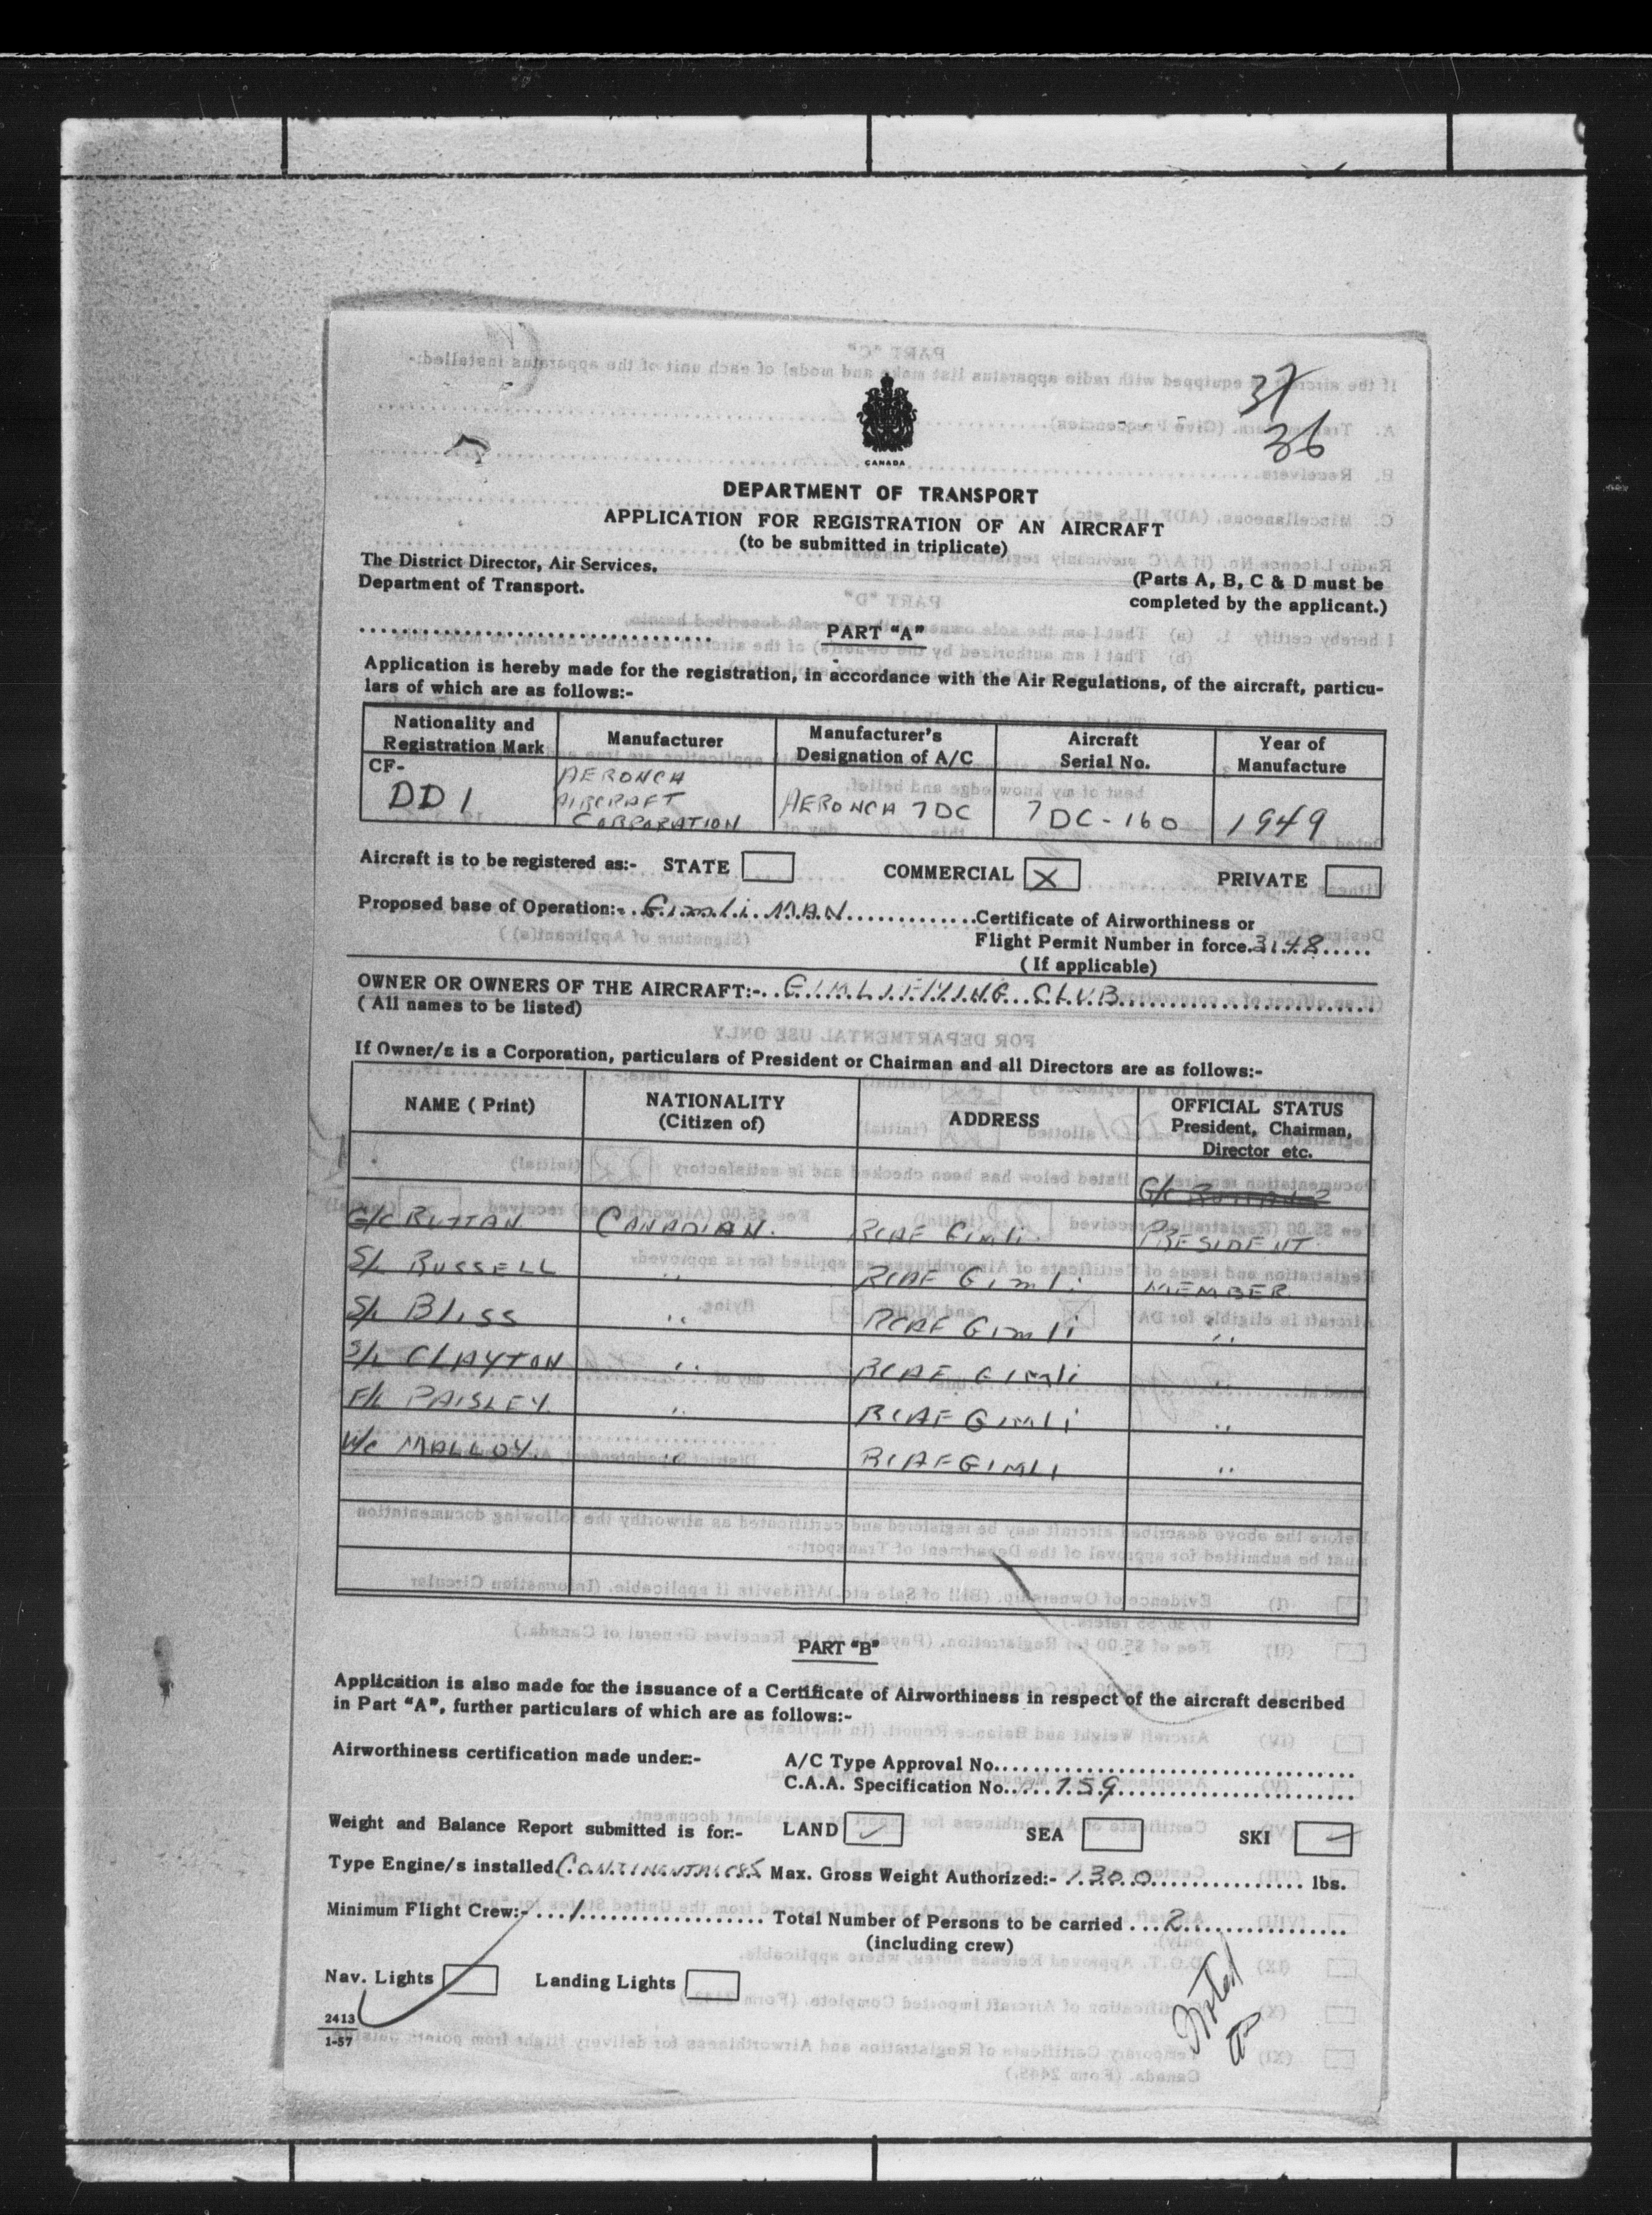 37
36
CANADA
DEPARTMENT OF TRANSPORT
APPLICATION FOR REGISTRATION OF AN AIRCRAFT
(to be submitted in triplicate)
The District Director, Air Services,
Department of Transport.
(Parts A, B, C & D must be
completed by the applicant.)
PART "A"
Application is hereby made for the registration, in accordance with the Air Regulations, of the aircraft, particu-
lars of which are as follows:-
Nationality and Registration Mark Manufacturer Manufacturer's Designation of A/C Aircraft Serial No. Year of Manufacture
CF-
DDI AERONCA AIRCRAFT CORPORATION AERONCA 7DC 7DC-160 1949
Aircraft is to be registered as:- STATE COMMERCIAL X PRIVATE
Proposed base of Operation:- Gimli MAN Certificate of Airworthiness or
Flight Permit Number in force 3148
( If applicable)
OWNER OR OWNERS OF THE AIRCRAFT:- GIMLI FLYING CLUB
( All names to be listed)
If Owner/s is a Corporation, particulars of President or Chairman and all Directors are as follows:-
NAME ( Print) NATIONALITY (Citizen of) ADDRESS OFFICIAL STATUS President, Chairman, Director etc.
G/C RUTTAN CANADIAN. RCAF Gimli PRESIDENT
S/L RUSSELL " RCAF Gimli MEMBER
S/L BLISS " RCAF Gimli "
S/L CLAYTON " RCAF Gimli "
F/L PAISLEY " RCAF GIMLI "
W/C MALLOY " RCAF GIMLI "
PART "B"
Application is also made for the issuance of a Certificate of Airworthiness in respect of the aircraft described
in Part "A", further particulars of which are as follows:-
Airworthiness certification made under:- A/C Type Approval No.
C.A.A. Specification No. 759
Weight and Balance Report submitted is for:- LAND ✓ SEA SKI ✓
Type Engine/s installed CONTINENTAL C85 Max. Gross Weight Authorized:- 1300 lbs.
Minimum Flight Crew:- 1 Total Number of Persons to be carried 2
(including crew)
Nav. Lights Landing Lights
Noted
2413
1-57